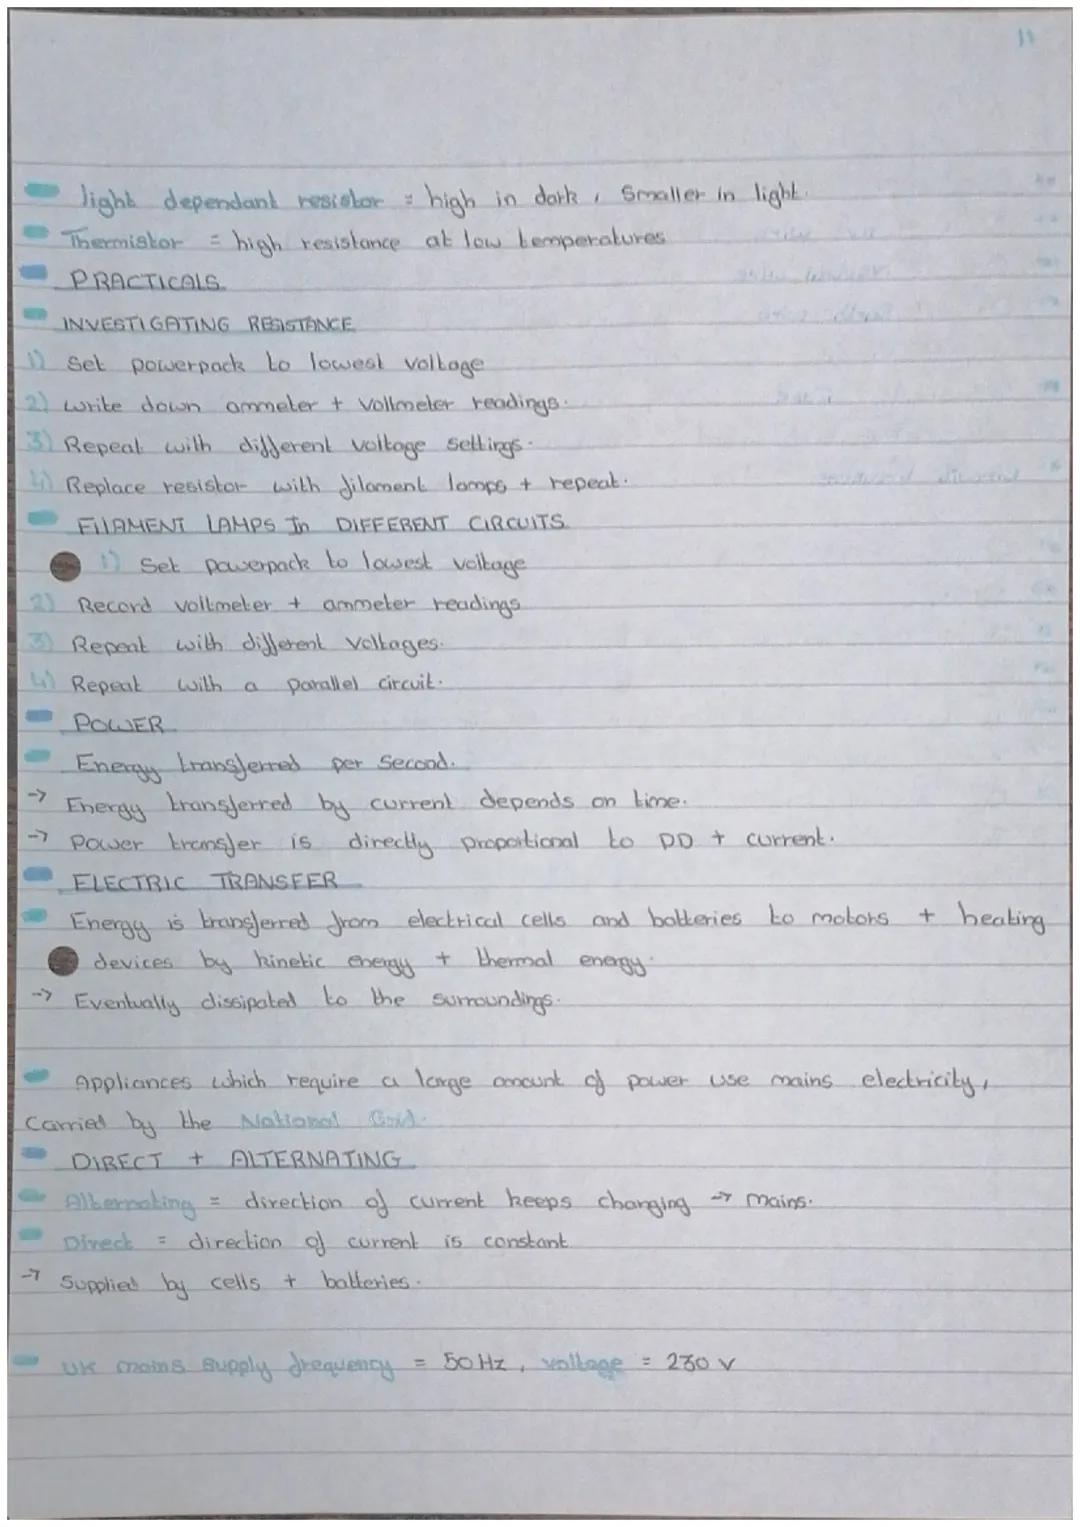 11
light dependant resistor = high in dark, Smaller in light.
Thermistor = high resistance at low temperatures
PRACTICALS
INVESTIGATING RESISTANCE
1) Set powerpack to lowest voltage
2) write down ammeter + voltmeter readings.
3) Repeat with different voltage settings.
4) Replace resistor with filament lamps + repeat.
FILAMENT LAMPS In DIFFERENT CIRCUITS
1) Set powerpack to lowest voltage
2) Record voltmeter + ammeter readings
3) Repeat with different voltages.
4) Repeat with a parallel circuit.
POWER
Energy transferred per Second.
-> Energy transferred by current depends on time.
-> Power transfer is directly proportional to PD + current.
ELECTRIC TRANSFER
Energy is transferred from electrical cells and batteries to motors + heating
devices by kinetic energy + thermal energy.
-> Eventually dissipated to the surroundings.
Appliances which require a large amount of power use mains electricity,
Carried by the National Grid.
DIRECT + ALTERNATING
Alternating = direction of current keeps changing -> mains.
Direct = direction of current is constant
-> Supplied by cells + batteries.
UK mains supply frequency = 50 Hz, voltage = 230 V